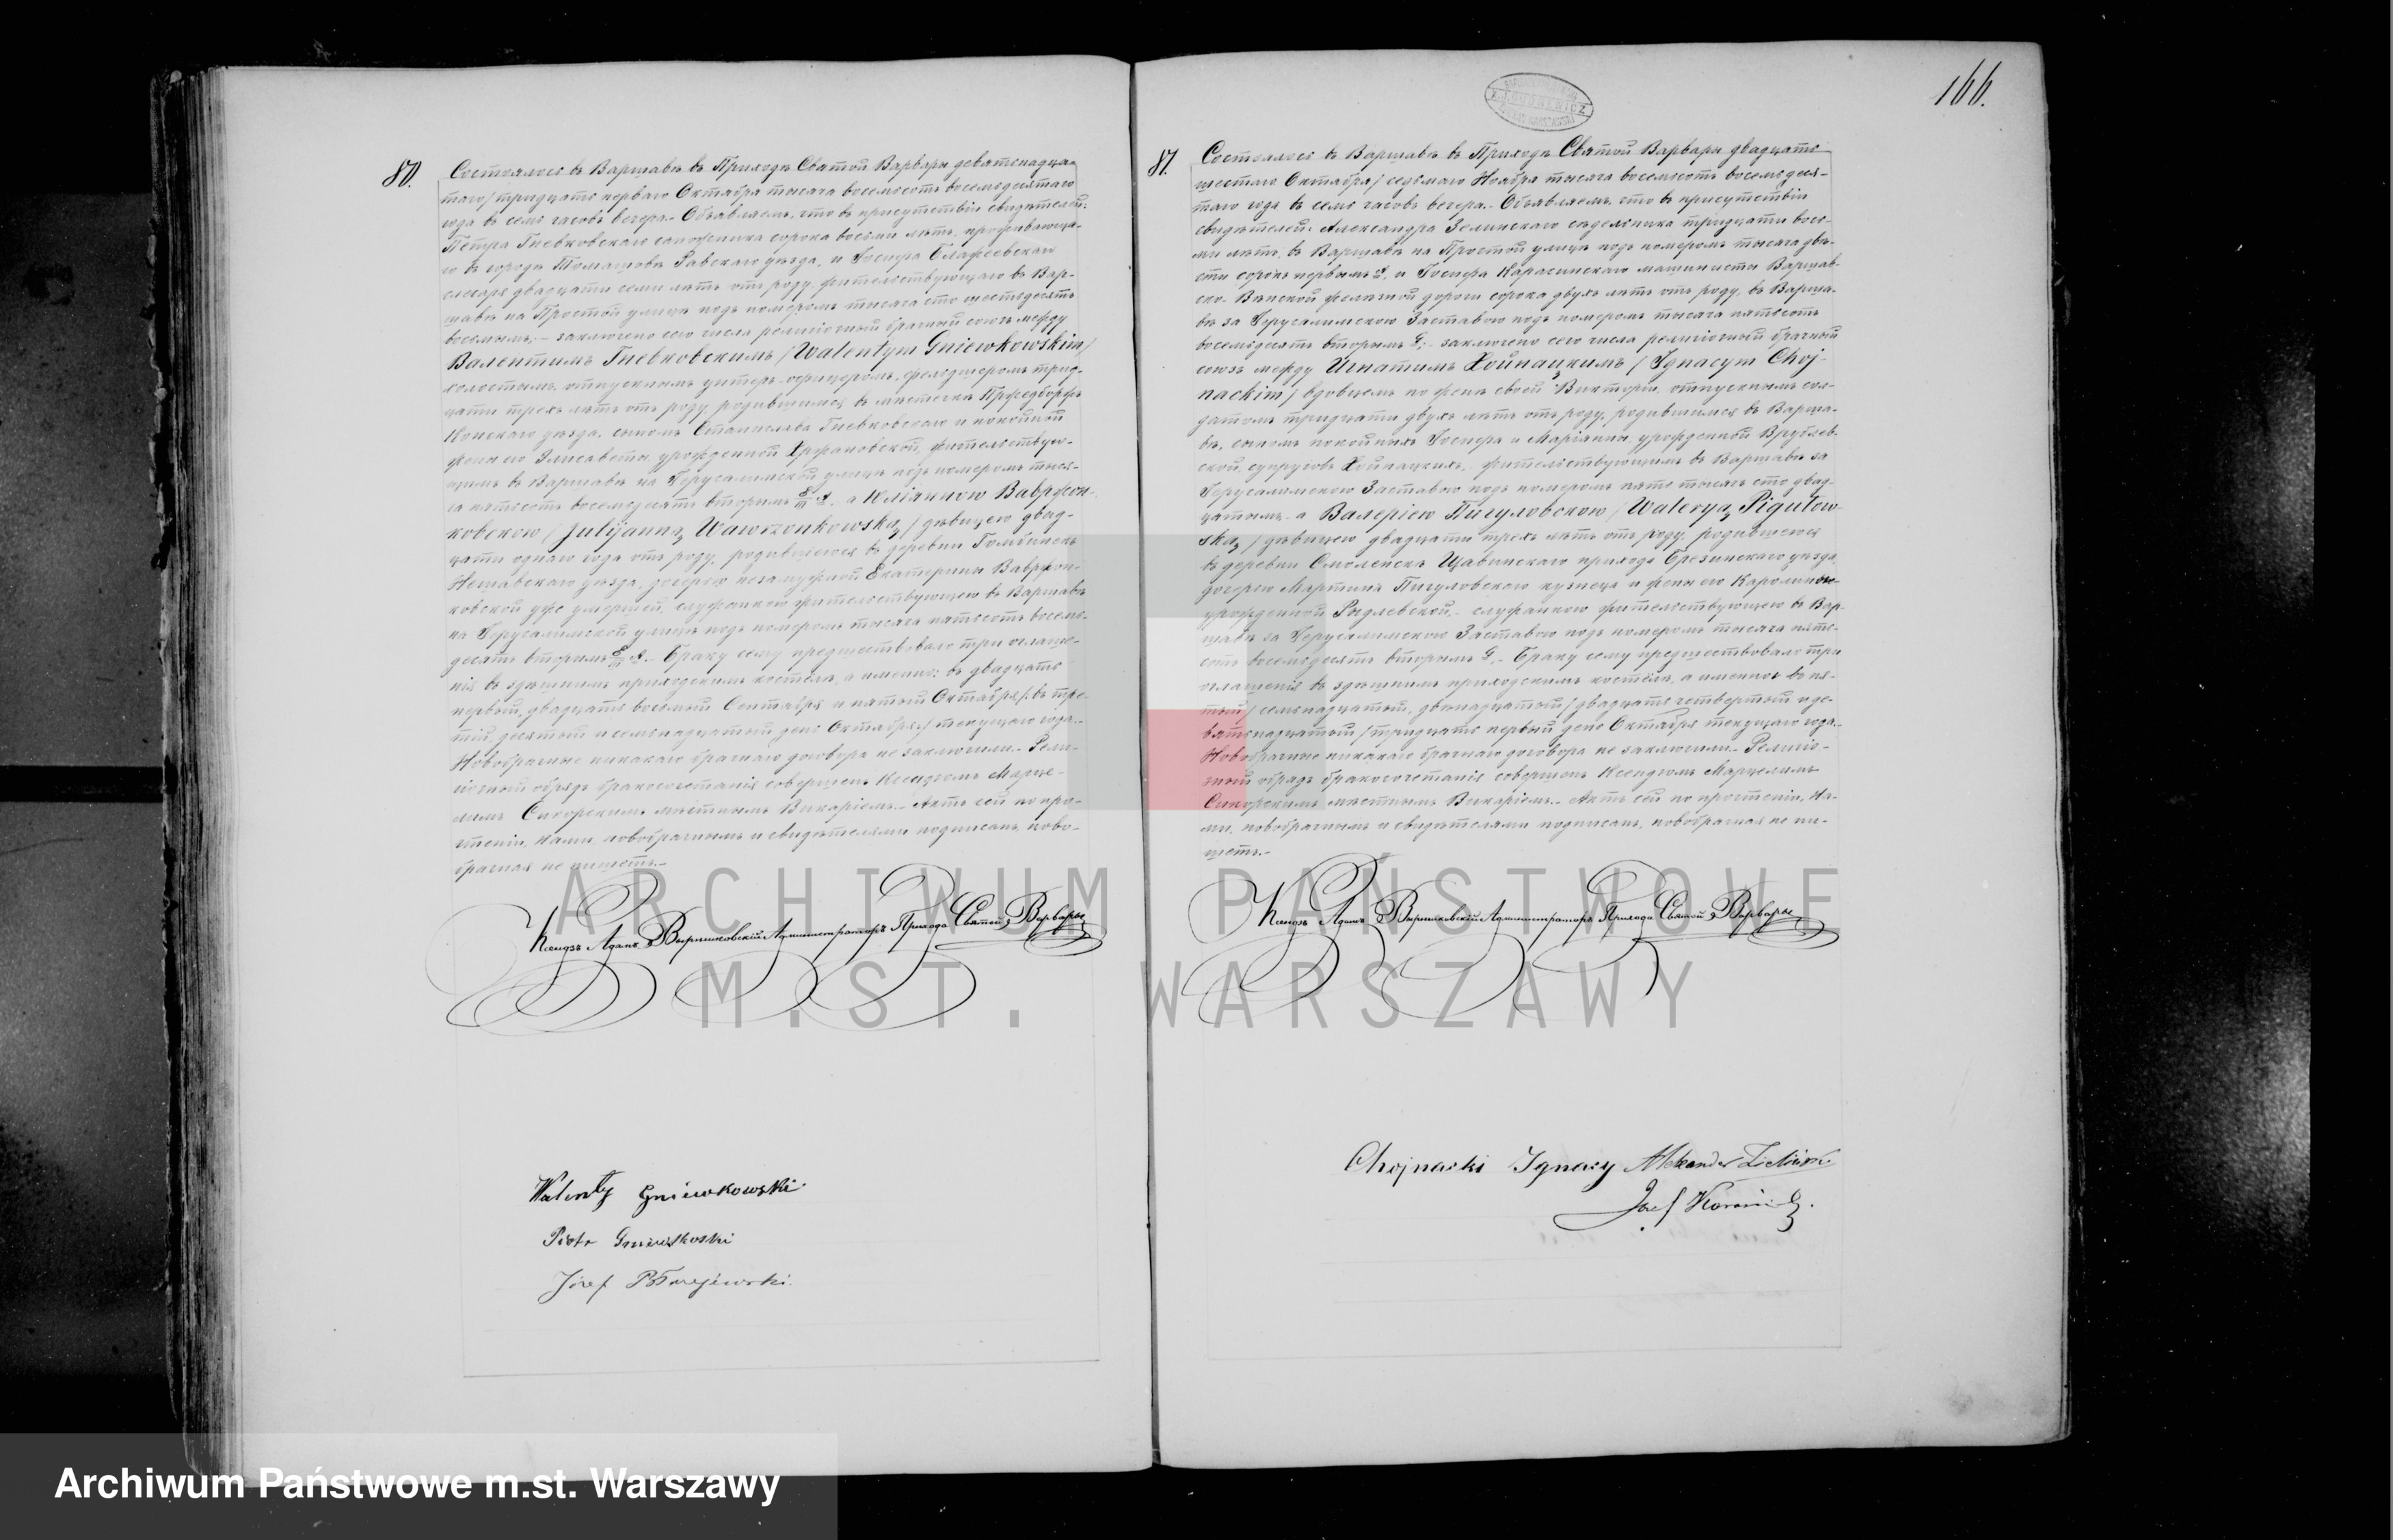 80.
Состоялось въ Варшавѣ въ Приходѣ Святой Варвары девятнадца-
таго/тридцать перваго Октября тысяча восемьсотъ восемьдесятаго
года въ семь часовъ вечера.- Объявляемъ, что въ присутствіи свидѣтелей:
Петра Гневковскаго сапожника сорока восьми лѣтъ, проживающа-
го въ городѣ Томашовѣ Равскаго уѣзда, и Іосифа
слесаря двадцати семи лѣтъ отъ роду, жительствующаго въ Вар-
шавѣ на Простой улицѣ подъ номеромъ тысяча сто шестьдесятъ
восьмымъ,- заключенъ сего числа религіозный брачный союзъ между
Валентымъ Гневковскимъ /Walentym Gniewkowskim/
холостымъ, отпускнымъ унтеръ-офицеромъ, фельдшеромъ, трид-
цати трехъ лѣтъ отъ роду, родившимся въ мѣстечкѣ Пржедборжѣ
Конскаго уѣзда, сыномъ Станислава Гневковскаго и покойной
жены его Элисаветы, урожденной Хржановской, жительствую-
щимъ въ Варшавѣ на Іерусалимской улицѣ подъ номеромъ тыся-
ча пятьсотъ восемьдесятъ вторымъ а Юліянною Вавржон-
ковскою /Julijanną Wawrzonkowską/ дѣвицею двад-
цати одного года отъ роду, родившеюся въ деревни
Нешавскаго уѣзда, дочерью незамужной Екатерины Вавржон-
ковской уже умершей, служанкою жительствующею въ Варшавѣ
на Іерусалимской улицѣ подъ номеромъ тысяча пятьсотъ восемь-
десятъ вторымъ Браку сему предшествовало три оглаше-
нія въ здѣшнемъ приходскимъ костёлѣ, а именно: въ двадцать
первый, двадцать восьмый Сентября и пятый Октября/въ тре-
тій, десятый и семьнадцатый день Октября/ текущаго года.-
Новобрачные никакого брачнаго договора не заключили.- Рели-
гіозный обрядъ бракосочетанія совершенъ Ксендзомъ Марце-
лимъ Сикорскимъ мѣстнымъ Викаріемъ.- Актъ сей по про-
чтеніи, Нами, новобрачнымъ и свидѣтелями подписанъ, ново-
брачная не пишетъ.-
Ксендзъ Адамъ Администраторъ Прихода Святой Варвары
Walenty Gniewkowski
Piotr Gniewkoski
Józef
166.
81.
Состоялось въ Варшавѣ въ Приходѣ Святой Варвары двадцать
шестаго Октября/седьмаго Ноября тысяча восемьсотъ восемьдеся-
таго года въ семь часовъ вечера.- Объявляемъ, что въ присутствіи
свидѣтелей: Александра Зелинскаго сѣдельника тридцати вось-
ми лѣтъ, въ Варшавѣ на Простой улицѣ подъ номеромъ тысяча двѣ-
сти сорокъ первымъ и Іосифа Карасинскаго машинисты Варшав-
ско-Вѣнской желѣзной дороги сорока двухъ лѣтъ отъ роду, въ Варша-
вѣ за Іерусалимскою Заставою подъ номеромъ тысяча пятьсотъ
восемьдесятъ вторымъ G,- заключенъ сего числа религіозный брачный
союзъ между Игнатымъ Хойнацкимъ /Ignacym Choj-
nackim/ вдовцемъ по женѣ своей Викторіи, отпускнымъ сол-
датомъ тридцати двухъ лѣтъ отъ роду, родившимся въ Варша-
вѣ, сыномъ покойныхъ Іосифа и Маріанны урожденной Врублев-
ской, супруговъ Хойнацкихъ, жительствующимъ въ Варшавѣ за
Іерусалимскою Заставою подъ номеромъ пять тысячъ сто двад-
цатымъ,- а Валеріею Пигуловскою /Waleryą Pigułow-
ską/ дѣвицею двадцати трехъ лѣтъ отъ роду, родившеюся
въ деревни Смоленскѣ Щавинскаго прихода Брезинскаго уѣзда,
дочерью Мартина Пигуловскаго кузнеца и жены его Каролины
урожденной Рыдлевской,- служанкою жительствующею въ Вар-
шавѣ за Іерусалимскою Заставою подъ номеромъ тысяча пять-
сотъ восемьдесятъ вторымъ G.- Браку сему предшествовало три
оглашенія въ здѣшнемъ приходскимъ костёлѣ, а именно: въ пя-
тый/семьнадцатый, двѣнадцатый/двадцать четвертый и де-
вятьнадцатый/тридцать первый день Октября текущаго года.-
Новобрачные никакого брачнаго договора не заключили.- Религіо-
зный обрядъ бракосочетанія совершенъ Ксендзомъ Марцелимъ
Сикорскимъ мѣстнымъ Викаріемъ.- Актъ сей по прочтеніи, На-
ми, новобрачнымъ и свидѣтелями подписанъ, новобрачная не пи-
шетъ.-
Ксендзъ Адамъ Администраторъ Прихода Святой Варвары
Chojnacki Ignacy Aleksander Zieliński
Józef
ARCHIWUM PAŃSTWOWE
M.ST. WARSZAWY
Archiwum Państwowe m.st. Warszawy